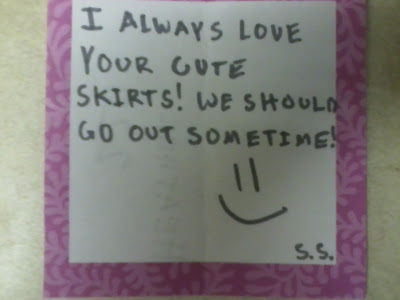 I ALWAYS LOVE
YOUR CUTE
SKIRTS! WE SHOULD
GO OUT SOMETIME!
S.S.